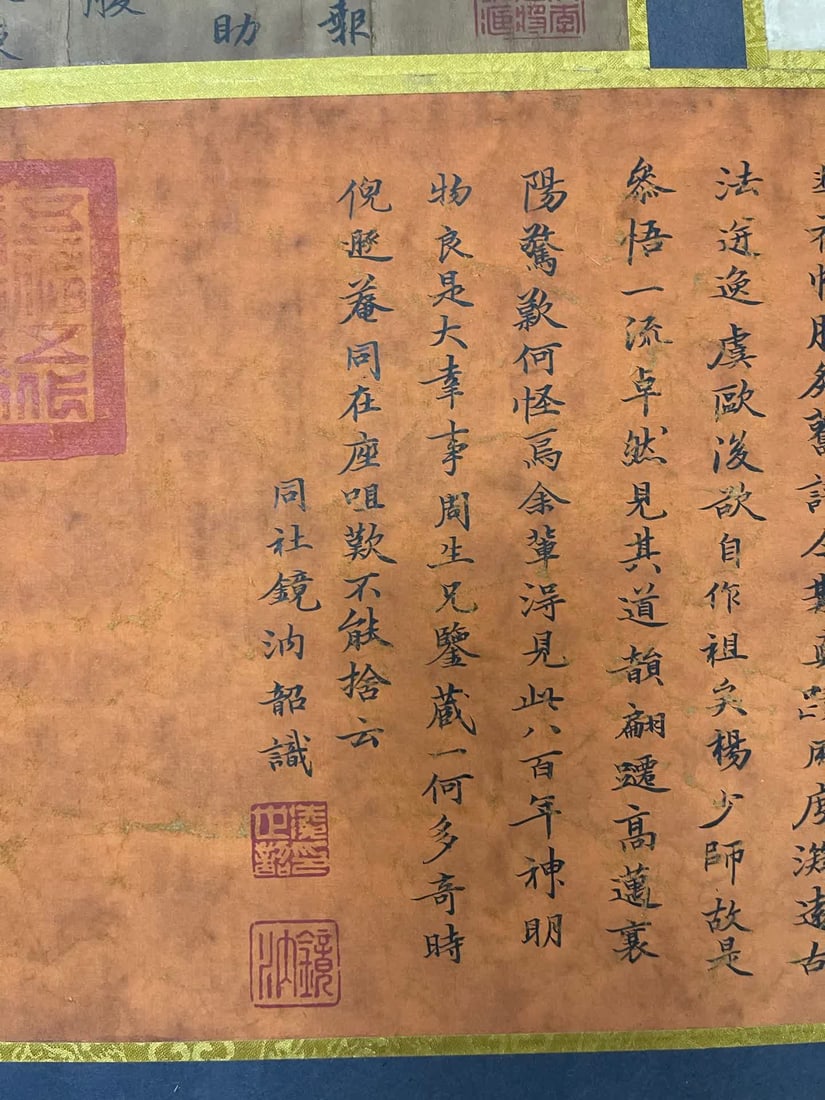 報
助
腹
舊 今 真蹟風度淵遠古
法迸逸虞歐後欲自作祖矣楊少師故是
叅悟一流卓然見其道韻翩躚高邁襄
陽驚歎何怪焉余輩得見此八百年神明
物良是大幸事周生兄鑒藏一何多奇時
倪遯菴同在座咀歎不能捨云
同社鏡汭韶識
鏡汭